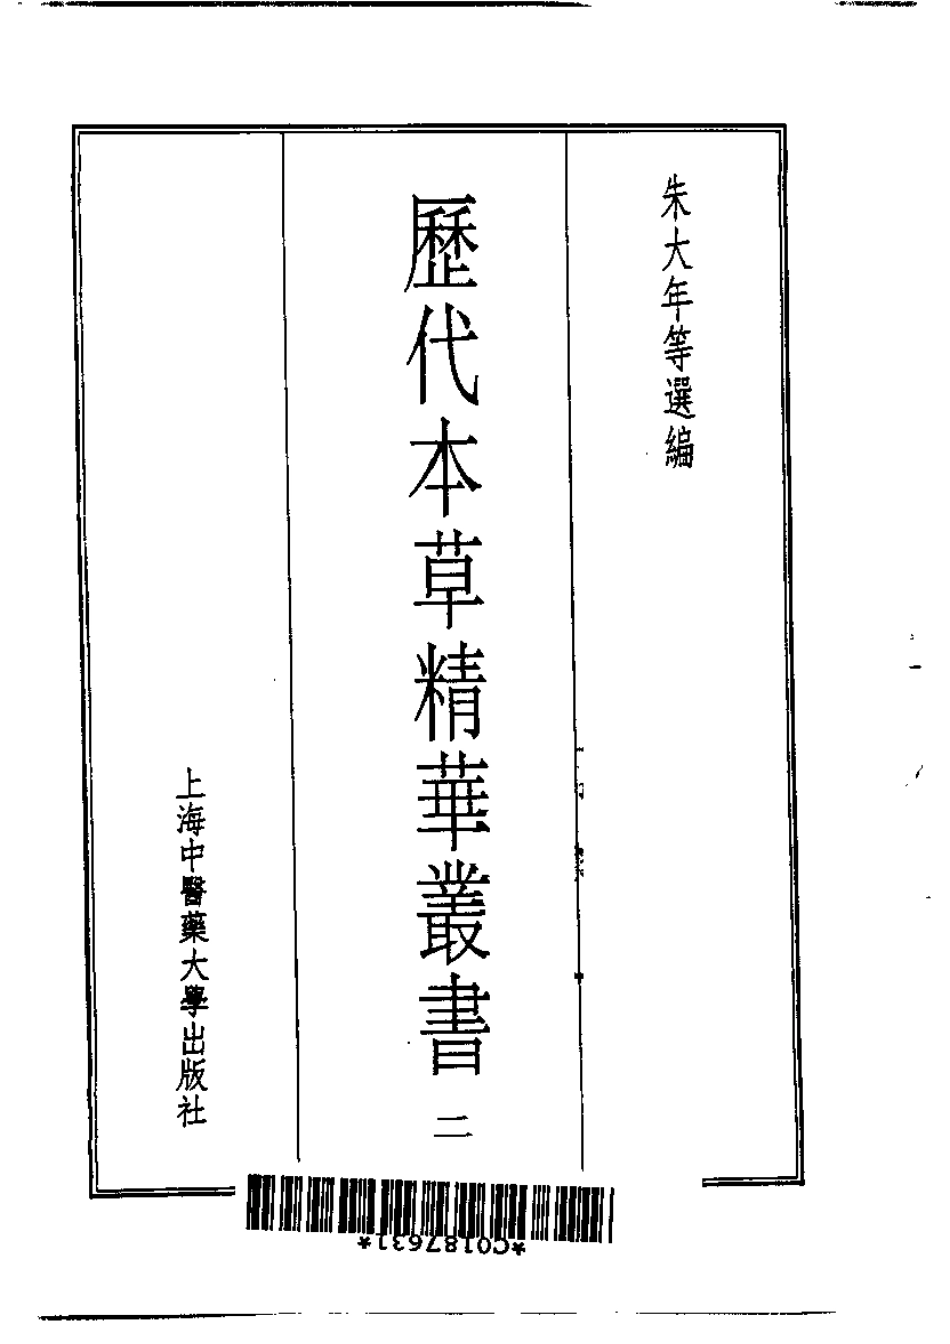 朱大年等選編
歷代本草精華叢書
二
上海中醫藥大學出版社
*C0187631*